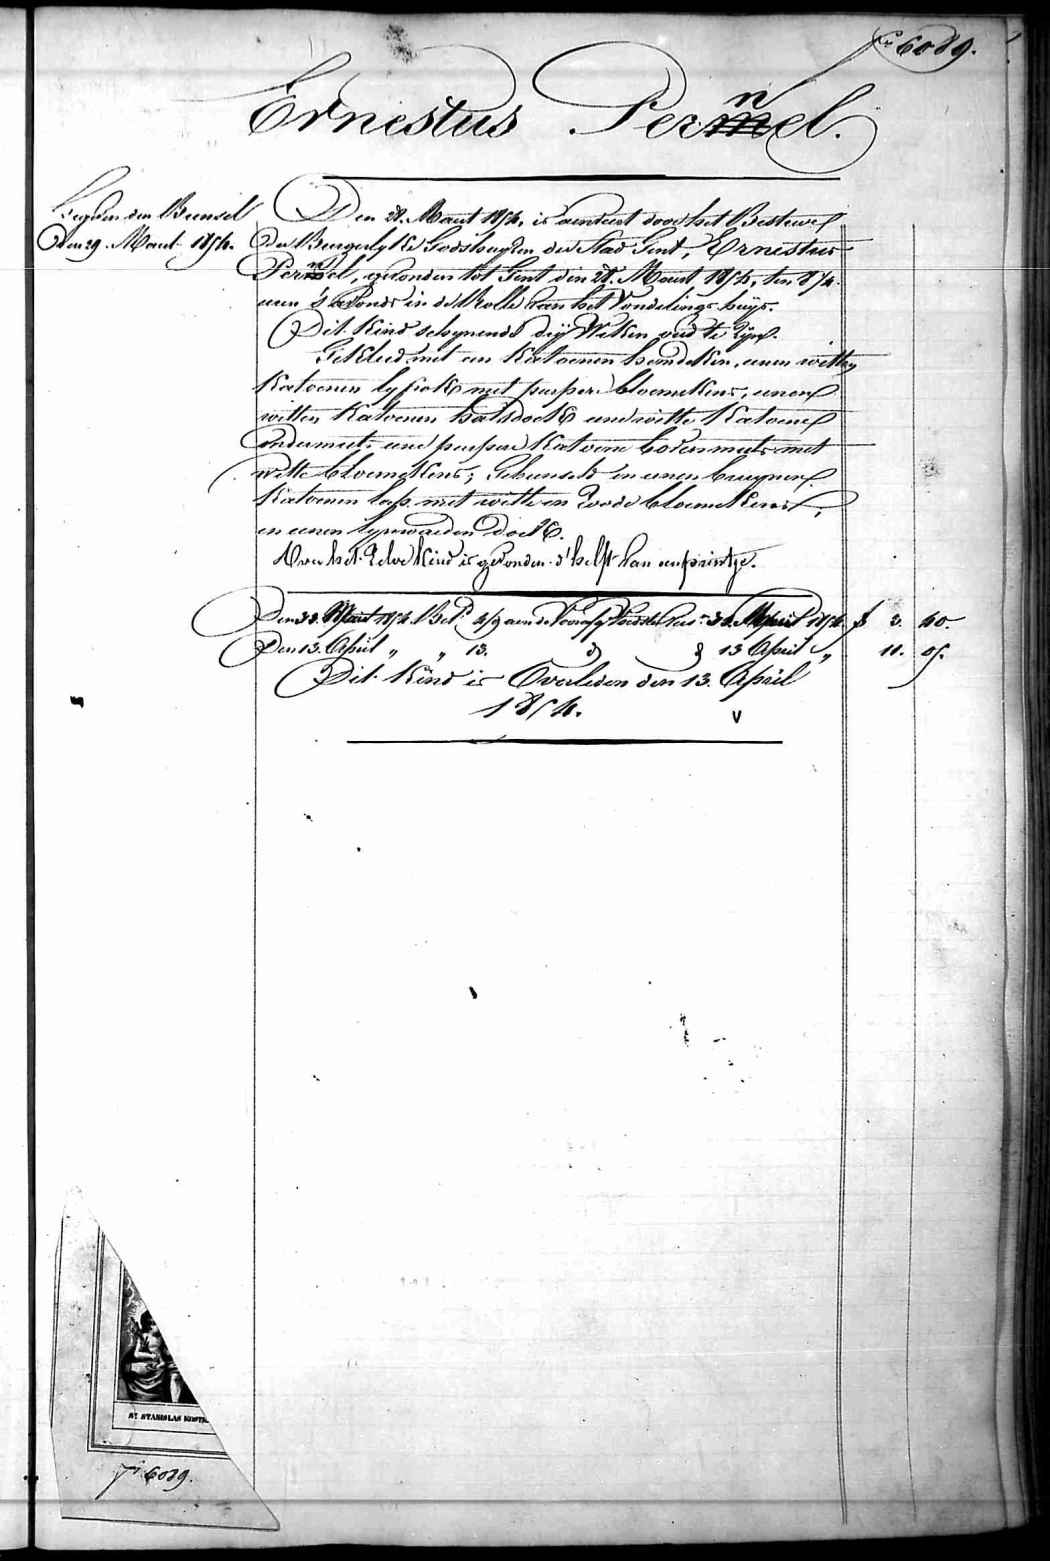 fo 6089.
Ernestus Pernel.
Den 29 Maert 1854.
Den 28. Maert 1854, is aenveert door het Bestuer
der Burgerlyke Godshuyzen der Stad Gent, Ernestus
Pernel, gevonden tot Gent den 28. Maert 1854, ten 8 1/4
uren 's avonds in de Rolle van het Vondelings huys.
Dit Kind schynende dry Weken oud te zyn.
Gekleed met een Katoenen hemdeken, eenen witten
Katoenen lyfrok met purpere bloemekens, eenen
witten Katoenen halsdoek eene witte Katoene
ondermuts eene purpere Katoene bovenmuts met
witte bloemekens; Gebunseld in eenen bruynen
Katoenen lap met witte en roode bloemekens,
en eenen lynwaeden doek.
Over het zelve Kind is gevonden d'helft van een printje.
Den 31. Maert 1854 4/9 aen de 1854. f 3. 40.
Den 13. April „ „ 13. d° 13 April „ 11. 05.
Dit Kind is Overleden den 13. April
1854.
v
ST STANISLAS KOSTK
fo 6089.